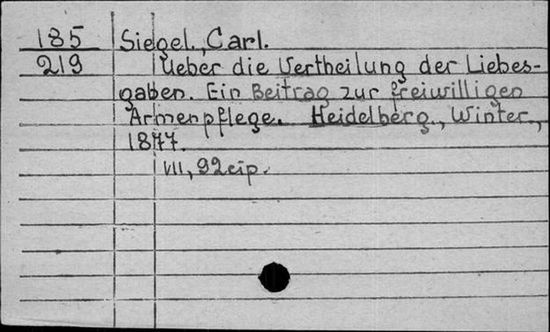 185
219
Siegel, Carl.
Ueber die Vertheilung der Liebes-
gaben. Ein Beitrag zur freiwilligen
Armenpflege. Heidelberg, Winter,
1877.
VII, 92 p.